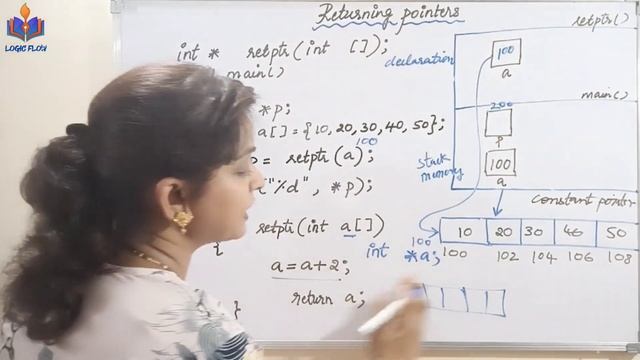 LOGIC FLOW
Returning pointers
int * retptr(int []);
declaration
main()
*p;
a[] = {10, 20, 30, 40, 50};
100
= retptr(a);
"%d", *p);
retptr(int a[])
{
int *a;
100
a = a + 2;
return a;
}
retptr()
100
a
main()
200
P
100
a
stack
memory
constant pointer
10 20 30 40 50
100 102 104 106 108